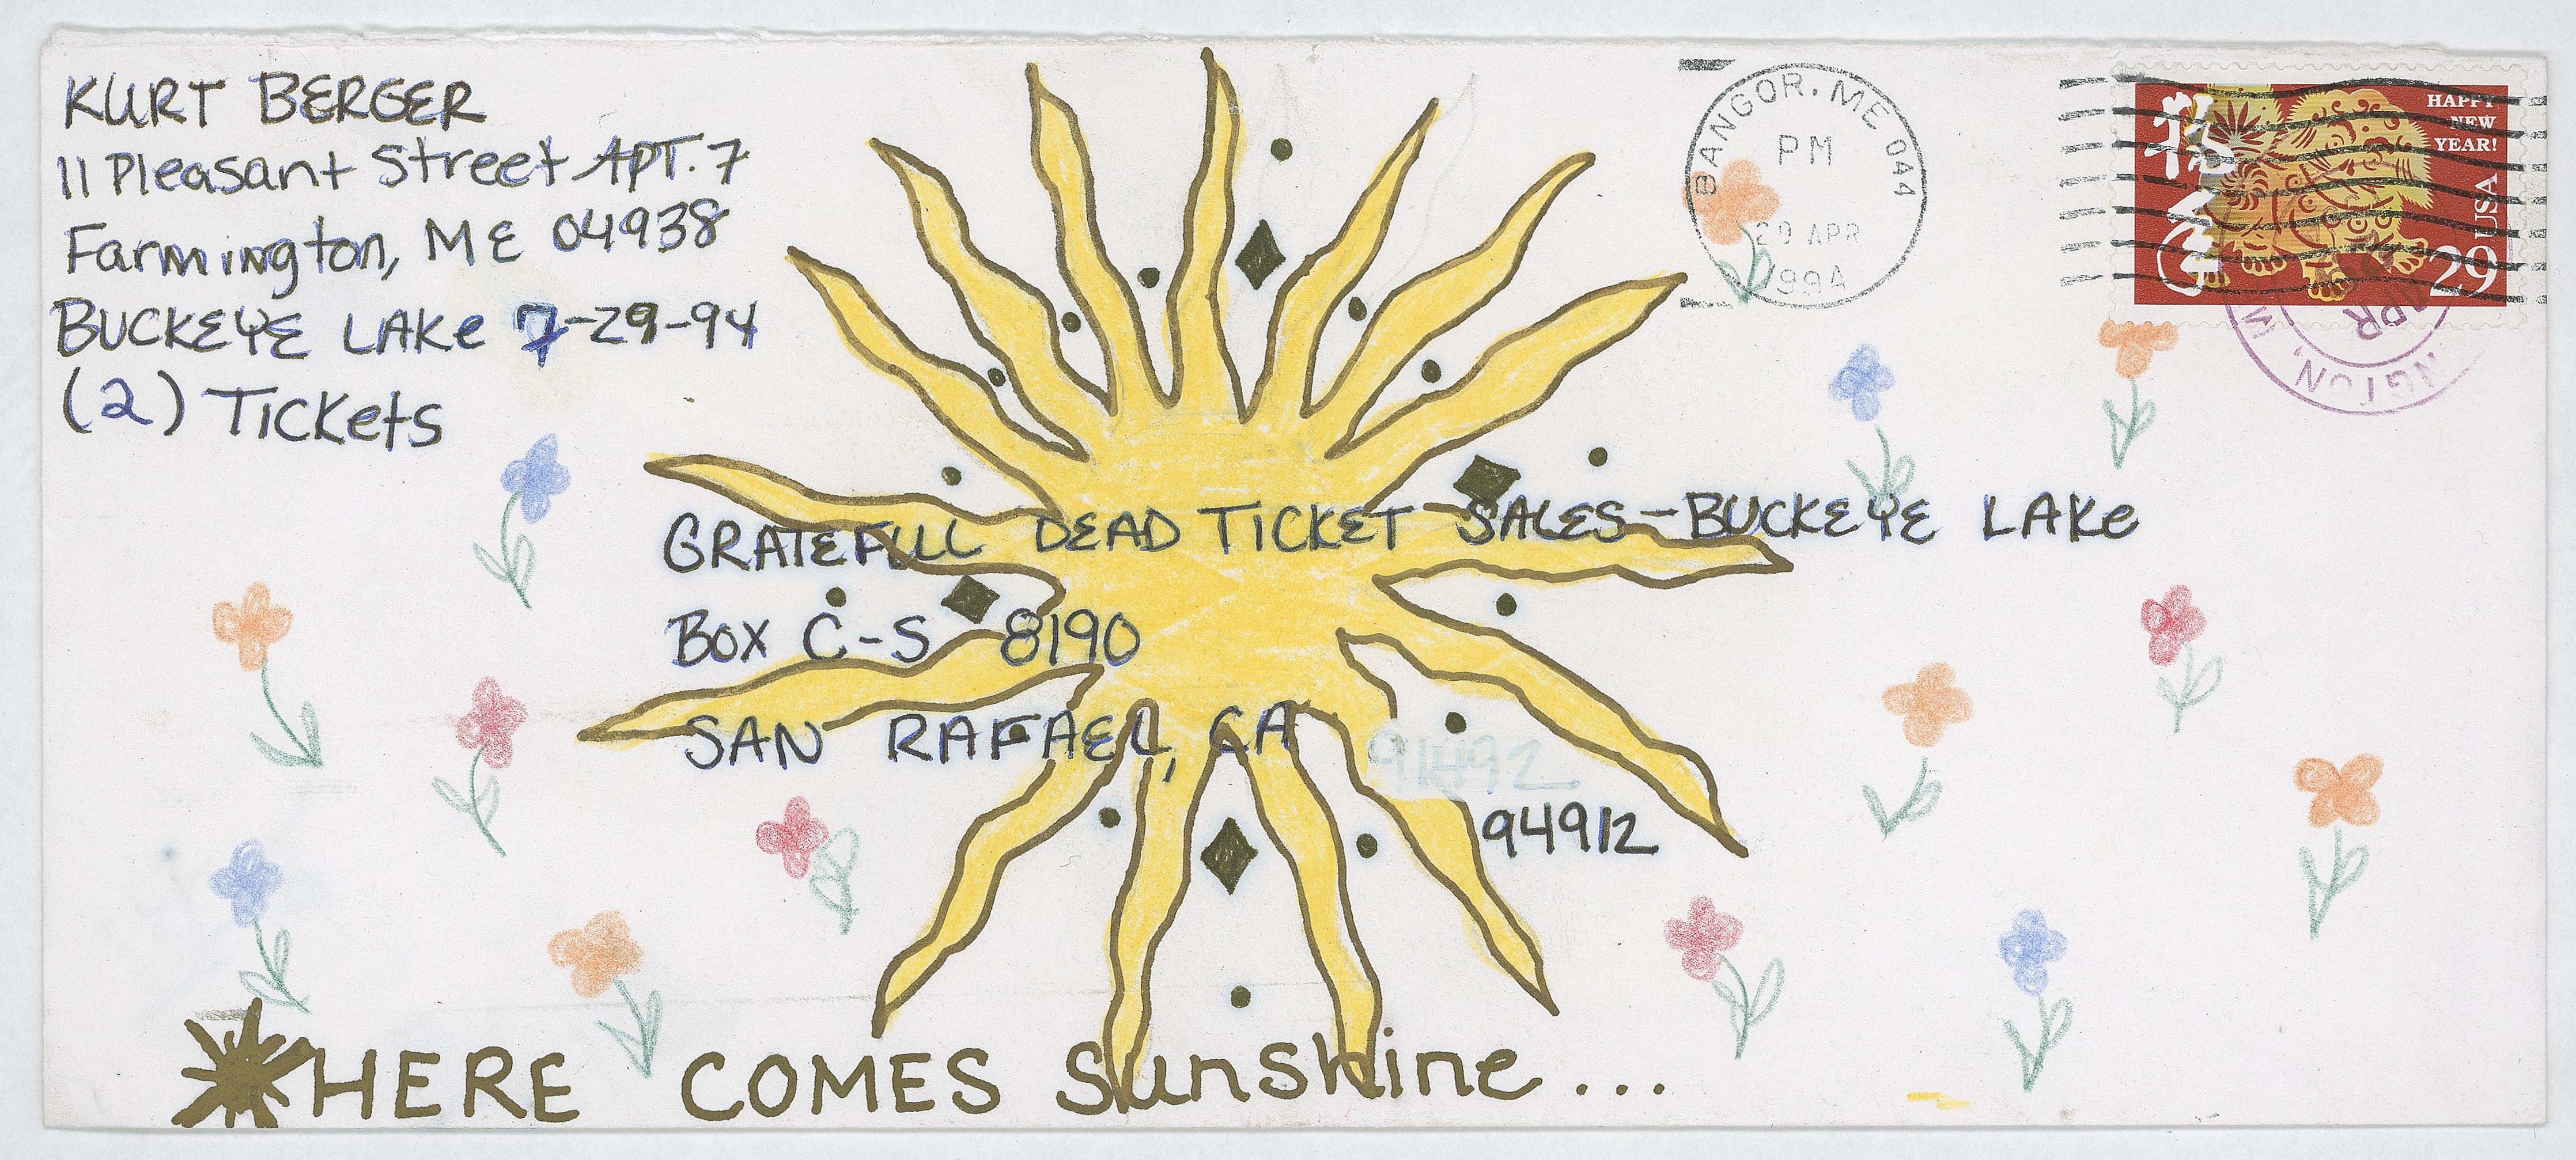 KURT BERGER
11 Pleasant Street APT. 7
Farmington, ME 04938
BUCKEYE LAKE 7-29-94
(2) Tickets
BANGOR. ME 044
PM
29 APR
1994
HAPPY
NEW
YEAR!
USA
29
NGTON,
APR
GRATEFULL DEAD TICKET SALES-BUCKEYE LAKE
BOX C-S 8190
SAN RAFAEL, CA
91492
94912
HERE COMES Sunshine...